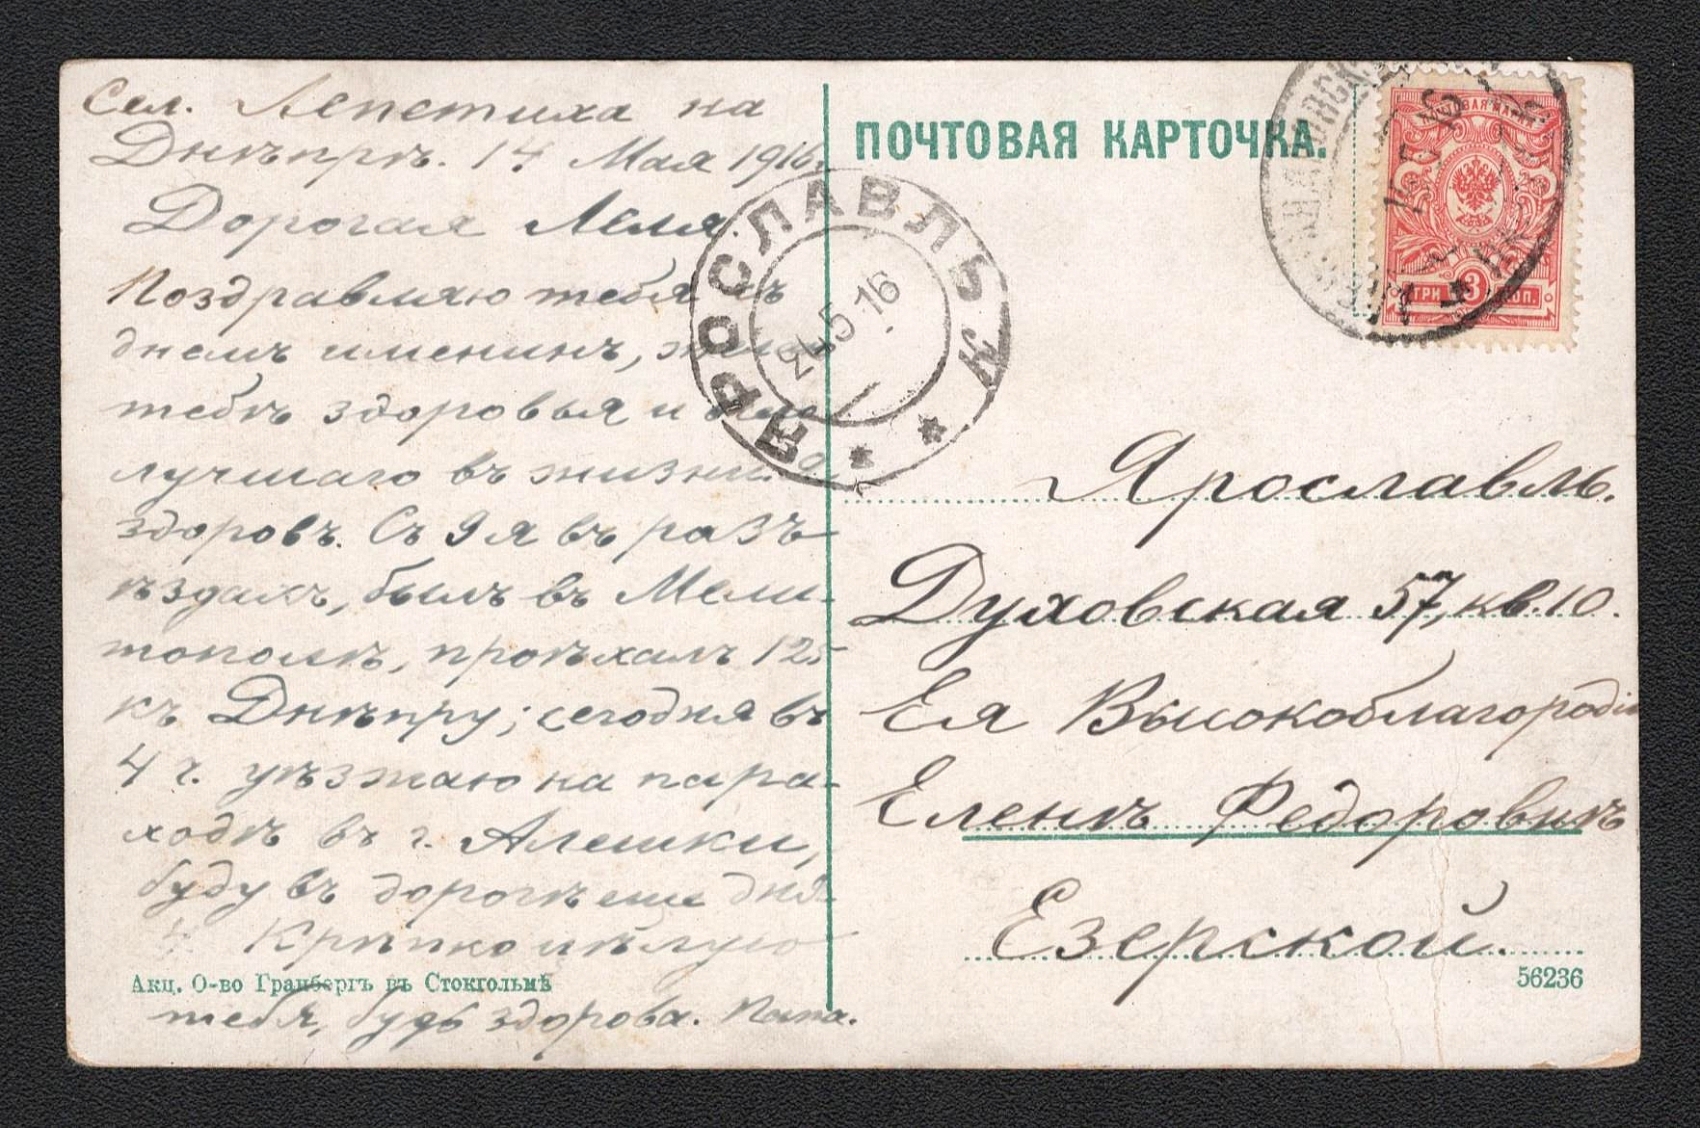 Сел. Лепетиха на
Днѣпрѣ. 14 Мая 1916 г.
Дорогая Леля.
Поздравляю тебя съ
днемъ именинъ,
тебѣ здоровья и всего
лучшаго въ жизни. Я
здоровъ. Съ 9 я въ разъ-
ѣздахъ, былъ въ Мели-
тополѣ, проѣхалъ 125
къ Днѣпру; сегодня въ
4 ч. уѣзжаю на паро-
ходѣ въ г. Алешки,
буду въ дорогѣ еще дня
Крѣпко цѣлую
тебя, будь здорова. Папа.
Акц. О-во Гранбергъ въ Стокгольмѣ
ПОЧТОВАЯ КАРТОЧКА.
ЯРОСЛАВЛЬ
24 5 16
ПОЧТОВАЯ МАРКА
ТРИ 3 КОП.
16 5 16
Ярославль.
Духовская 57, кв. 10.
Ея Высокоблагородiю
Еленѣ Федоровнѣ
Езерской.
56236